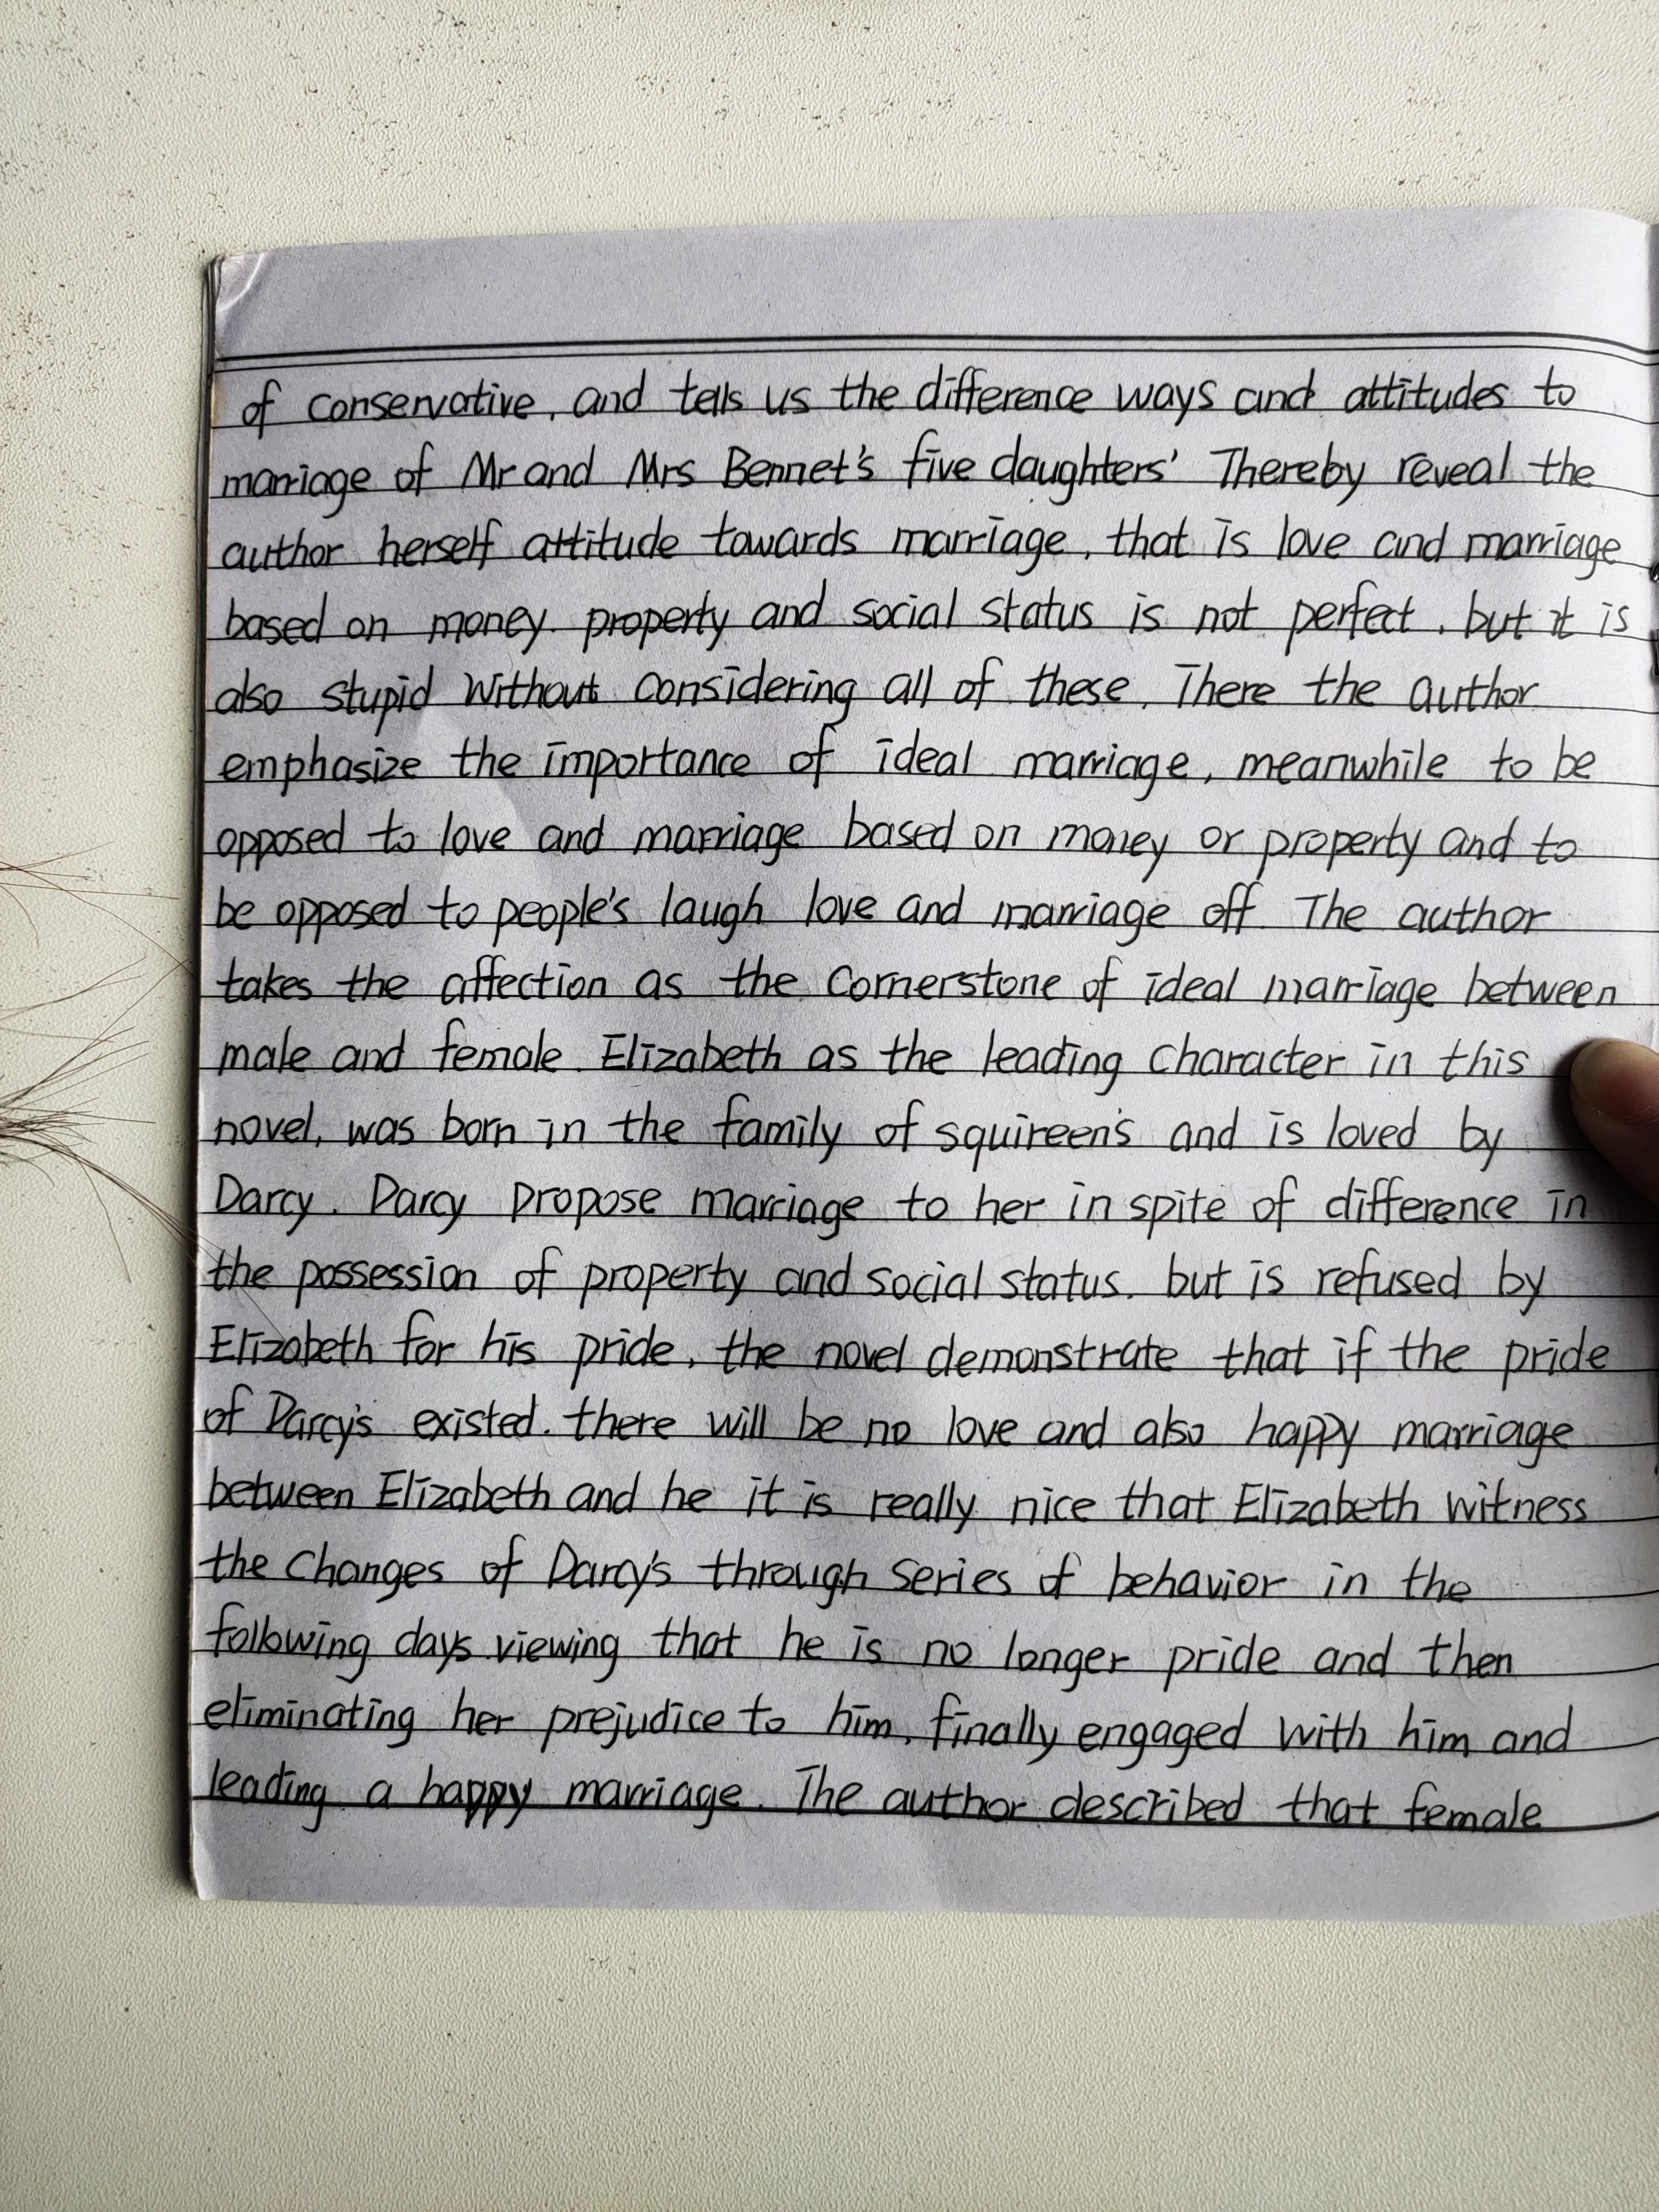 of conservative, and tells us the difference ways and attitudes to
marriage of Mr and Mrs Bennet's five daughters' Thereby reveal the
author herself attitude towards marriage, that is love and marriage
based on money. property and social status is not perfect, but it is
also stupid without considering all of these. There the author
emphasize the importance of ideal marriage, meanwhile to be
opposed to love and marriage based on money or property and to
be opposed to people's laugh love and marriage off. The author
takes the affection as the cornerstone of ideal marriage between
male and female. Elizabeth as the leading character in this
novel, was born in the family of squireen's and is loved by
Darcy. Darcy propose marriage to her in spite of difference in
the possession of property and social status. but is refused by
Elizabeth for his pride, the novel demonstrate that if the pride
of Darcy's existed. there will be no love and also happy marriage
between Elizabeth and he it is really nice that Elizabeth witness
the changes of Darcy's through series of behavior in the
following days. viewing that he is no longer pride and then
eliminating her prejudice to him, finally engaged with him and
leading a happy marriage. The author described that female